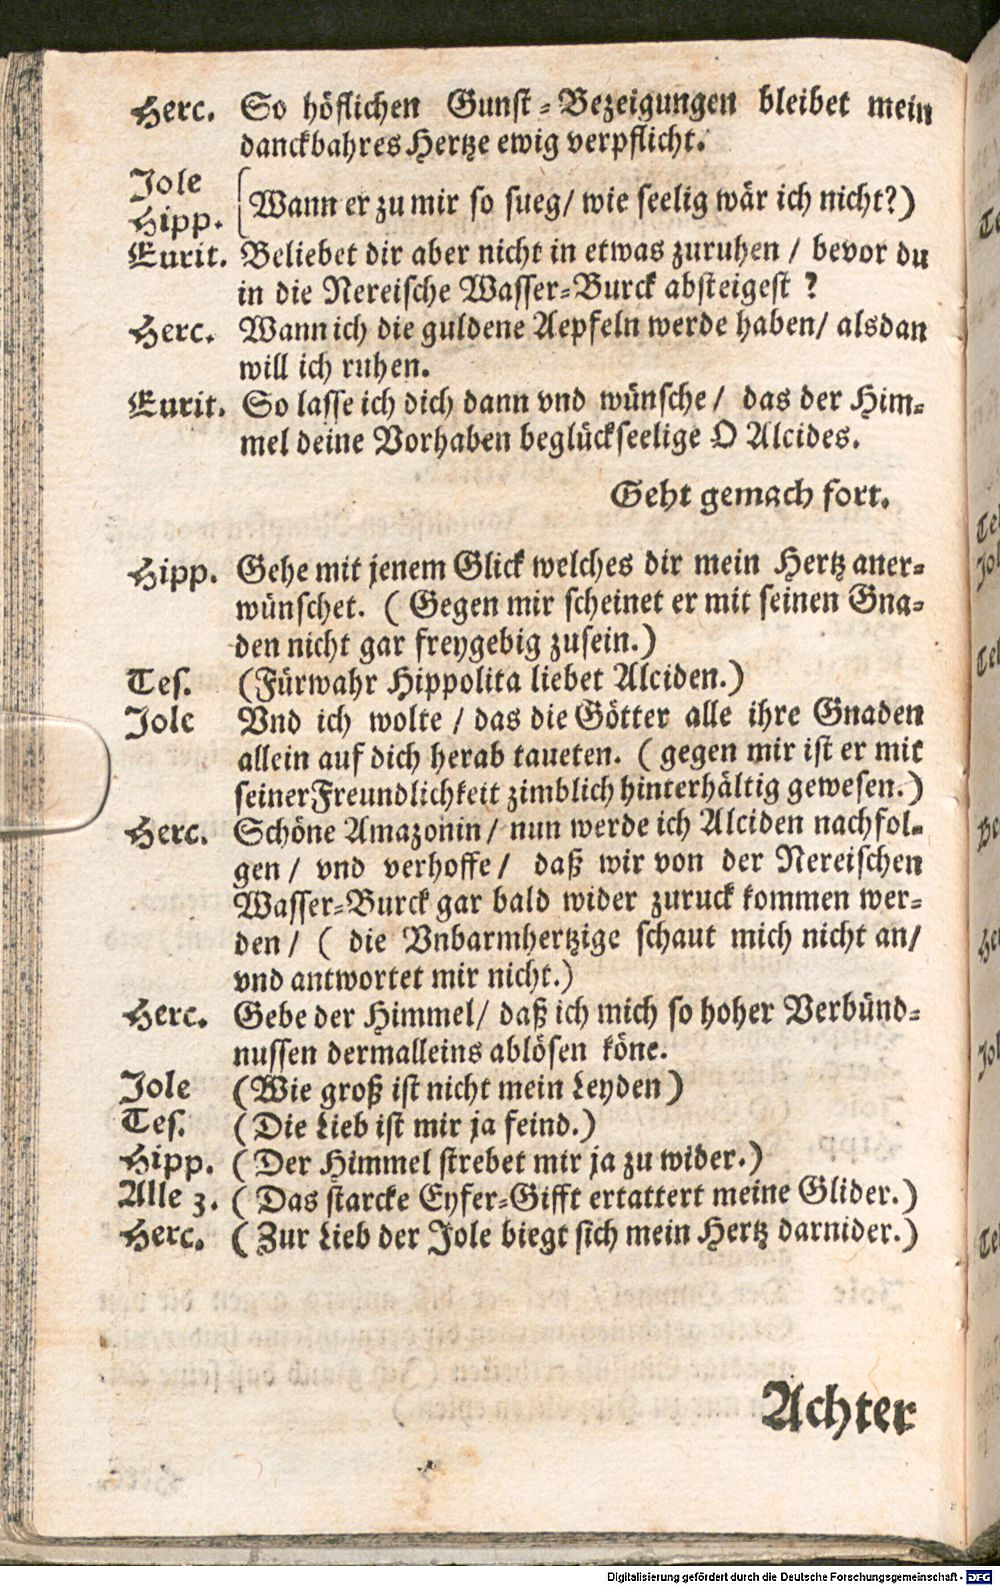 Herc. So höflichen Gunst-Bezeigungen bleibet mein
danckbahres Hertze ewig verpflicht.
Jole
Hipp. [Wann er zu mir so sueg/ wie seelig wär ich nicht?)
Eurit. Beliebet dir aber nicht in etwas zuruhen / bevor du
in die Nereische Wasser-Burck absteigest ?
Herc. Wann ich die guldene Aepfeln werde haben/ alsdan
will ich ruhen.
Eurit. So lasse ich dich dann vnd wünsche / das der Him-
mel deine Vorhaben beglückseelige O Alcides.
Geht gemach fort.
Hipp. Gehe mit jenem Glick welches dir mein Hertz aner-
wünschet. ( Gegen mir scheinet er mit seinen Gna-
den nicht gar freygebig zusein.)
Tes. (Fürwahr Hippolita liebet Alciden.)
Jole Vnd ich wolte / das die Götter alle ihre Gnaden
allein auf dich herab taueten. ( gegen mir ist er mit
seiner Freundlichkeit zimblich hinterhältig gewesen.)
Herc. Schöne Amazonin / nun werde ich Alciden nachfol-
gen / vnd verhoffe / daß wir von der Nereischen
Wasser-Burck gar bald wider zuruck kommen wer-
den / ( die Vnbarmhertzige schaut mich nicht an/
vnd antwortet mir nicht.)
Herc. Gebe der Himmel/ daß ich mich so hoher Verbünd-
nussen dermalleins ablösen köne.
Jole (Wie groß ist nicht mein Leyden )
Tes. (Die Lieb ist mir ja feind.)
Hipp. (Der Himmel strebet mir ja zu wider.)
Alle 3. ( Das starcke Eyfer-Gifft ertattert meine Glider.)
Herc. (Zur Lieb der Jole biegt sich mein Hertz darnider.)
Achter
Digitalisierung gefördert durch die Deutsche Forschungsgemeinschaft - DFG